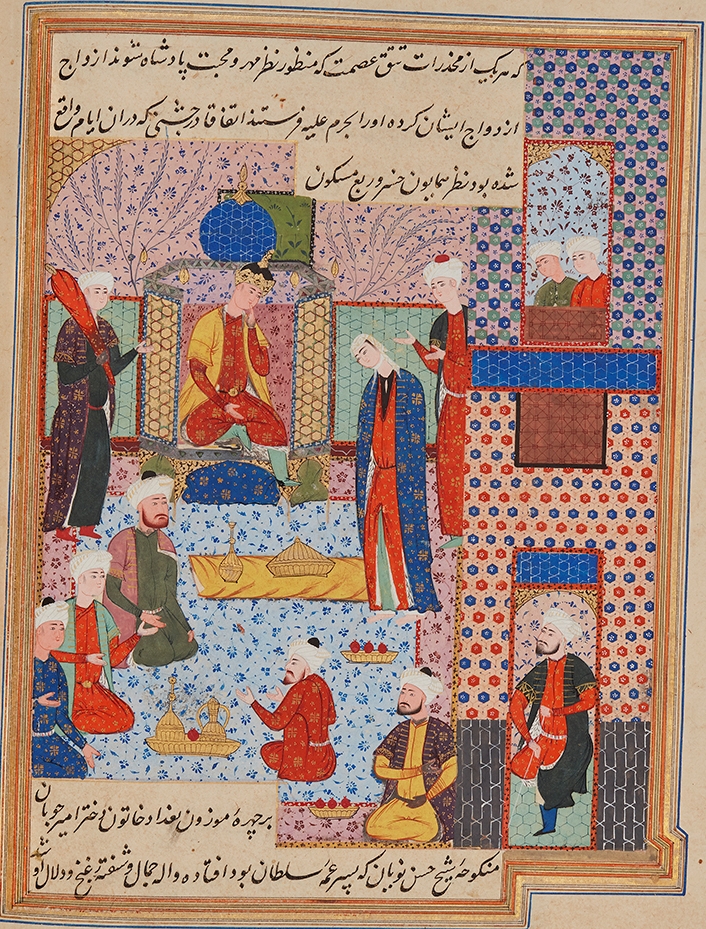 که هریک از مخدرات تتق عصمت که منظور نظر مهر و محبت پادشاه شوند ازواج
از دواج ایشان کرده اورا بحرم علیه فرستند اتفاقا در جشنی که دران ایام واقع
شده بود نظر همایون خسرو ربع مسکون
بر چهرهٔ موزون بغداد خاتون دختر امیر چوبان
منکوحهٔ شیخ حسن نویان که پسر عمهٔ سلطان بود افتاده واله جمال و شیفته غنج و دلال او شد